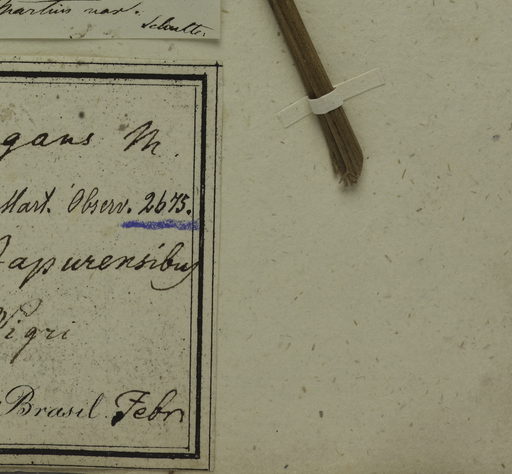 Martius nov.
Schultes
gans M.
Mart. Observ. 2675.
Japurensibus
Nigri
Brasil. Febr